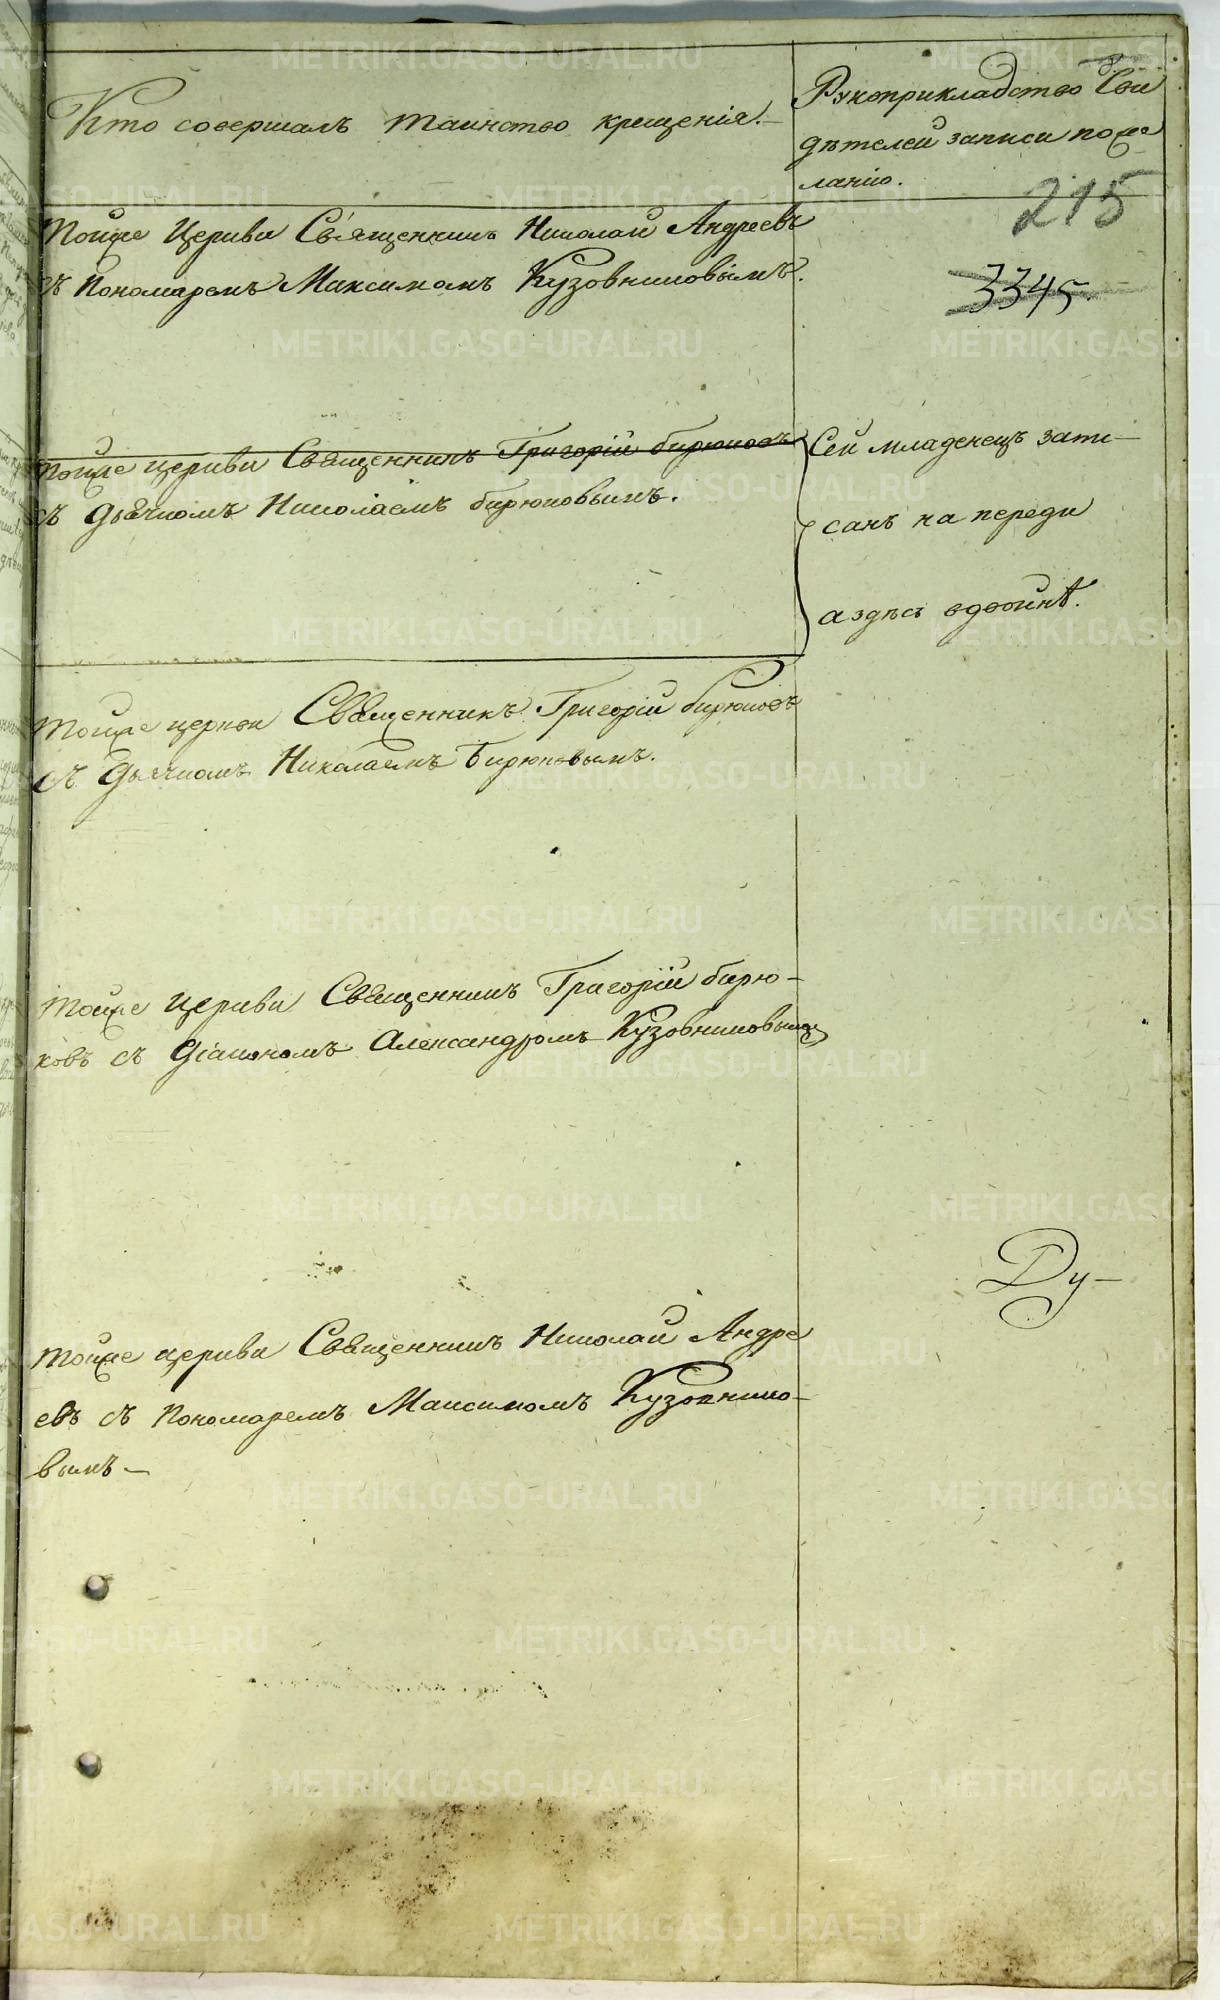 Кто совершалъ таинство крещенія.
Рукоприкладство Сви
дѣтелей записи по же
ланію.
215
3345.
Тойже Церкви Священникъ Николай Андреевъ
съ Пономаремъ Максимомъ Кузовниковымъ.
Тойже церкви Священникъ Григорій бирюковъ
съ Дьячкомъ Николаемъ бирюковымъ.
Сей младенецъ запи-
санъ на переди
а здѣсь вдвойнѣ.
Тойже церкви Священникъ Григорій бирюковъ
съ Дьячкомъ Николаемъ Бирюковымъ.
Тойже Церкви Священникъ Григорій бирю-
ковъ съ Діакономъ Александромъ Кузовниковымъ
Ду-
Тойже церкви Священникъ Николай Андре
евъ съ Пономаремъ Максимомъ Кузовнико-
вымъ-
METRIKI.GASO-URAL.RU